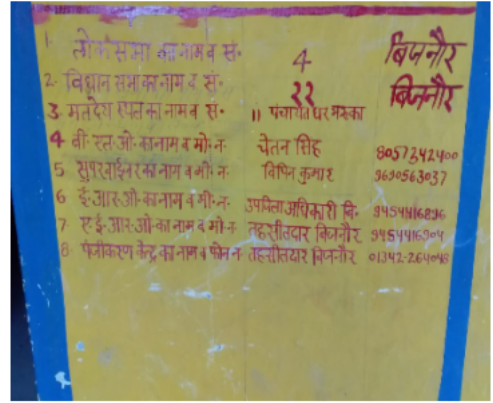 1 लोकसभा का नाम व सं. 4 बिजनौर
2. विधान सभा का नाम व सं. २२ बिजनौर
3. मतदेय स्थल का नाम व सं. 11 पंचायत घर
4 बी. एल. ओ. का नाम व मो. न. चेतन सिंह 8057342400
5 सुपरवाईजर का नाम व मो. न. विपिन कुमार 9690563037
6 ई. आर. ओ. का नाम व मो. न. उपजिलाअधिकारी बि. 9454416896
7 ए. ई. आर. ओ. का नाम व मो. न. तहसीलदार बिजनौर 9454416904
8. पंजीकरण केन्द्र का नाम व फोन न. तहसीलदार बिजनौर 01342-264048